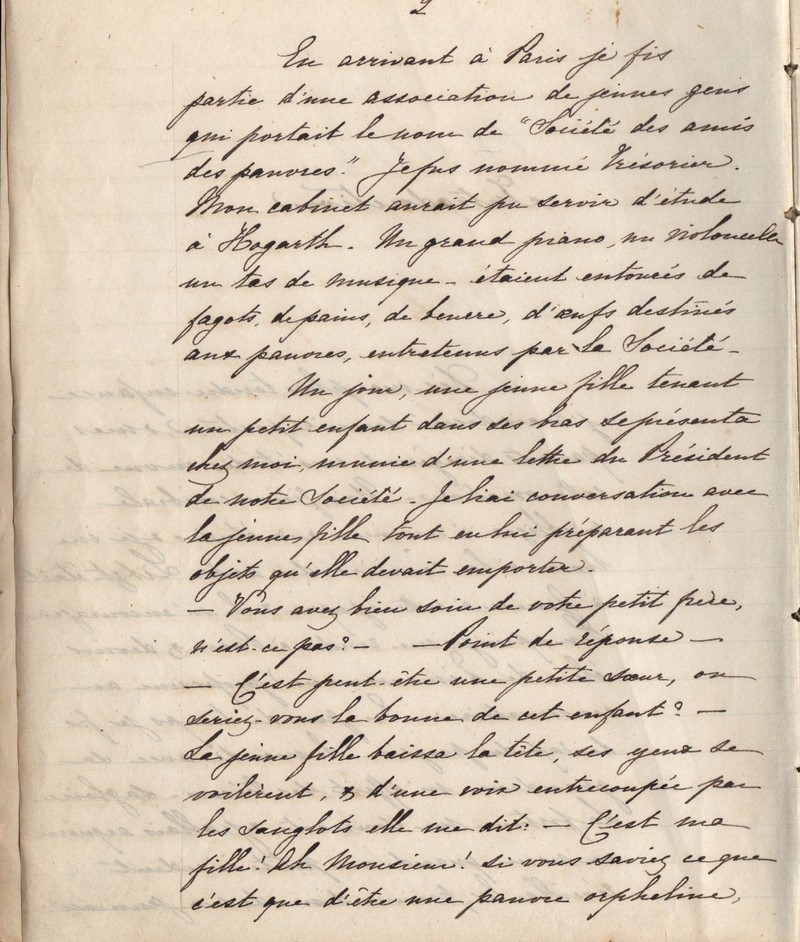 2
En arrivant à Paris je fis
partie d'une association de jeunes gens
qui portait le nom de "Société des amis
des pauvres." Je fus nommé Trésorier.
Mon cabinet aurait pu servir d'étude
à Hogarth. Un grand piano, un violoncelle
un tas de musique - étaient entourés de
fagots, de pains, de beurre, d'œufs destinés
aux pauvres, entretenus par la Société -
Un jour, une jeune fille tenant
un petit enfant dans ses bras se présenta
chez moi, munie d'une lettre du Président
de notre Société - Je liai conversation avec
la jeune fille tout en lui préparant les
objets qu'elle devait emporter.
- Vous avez bien soin de votre petit frère,
n'est-ce pas? - - Point de réponse -
- C'est peut-être une petite sœur, ou
seriez-vous la bonne de cet enfant? -
La jeune fille baissa la tête, ses yeux se
voilèrent, & d'une voix entrecoupée par
les sanglots elle me dit: - C'est ma
fille! Ah Monsieur! si vous saviez ce que
c'est que d'être une pauvre orpheline,